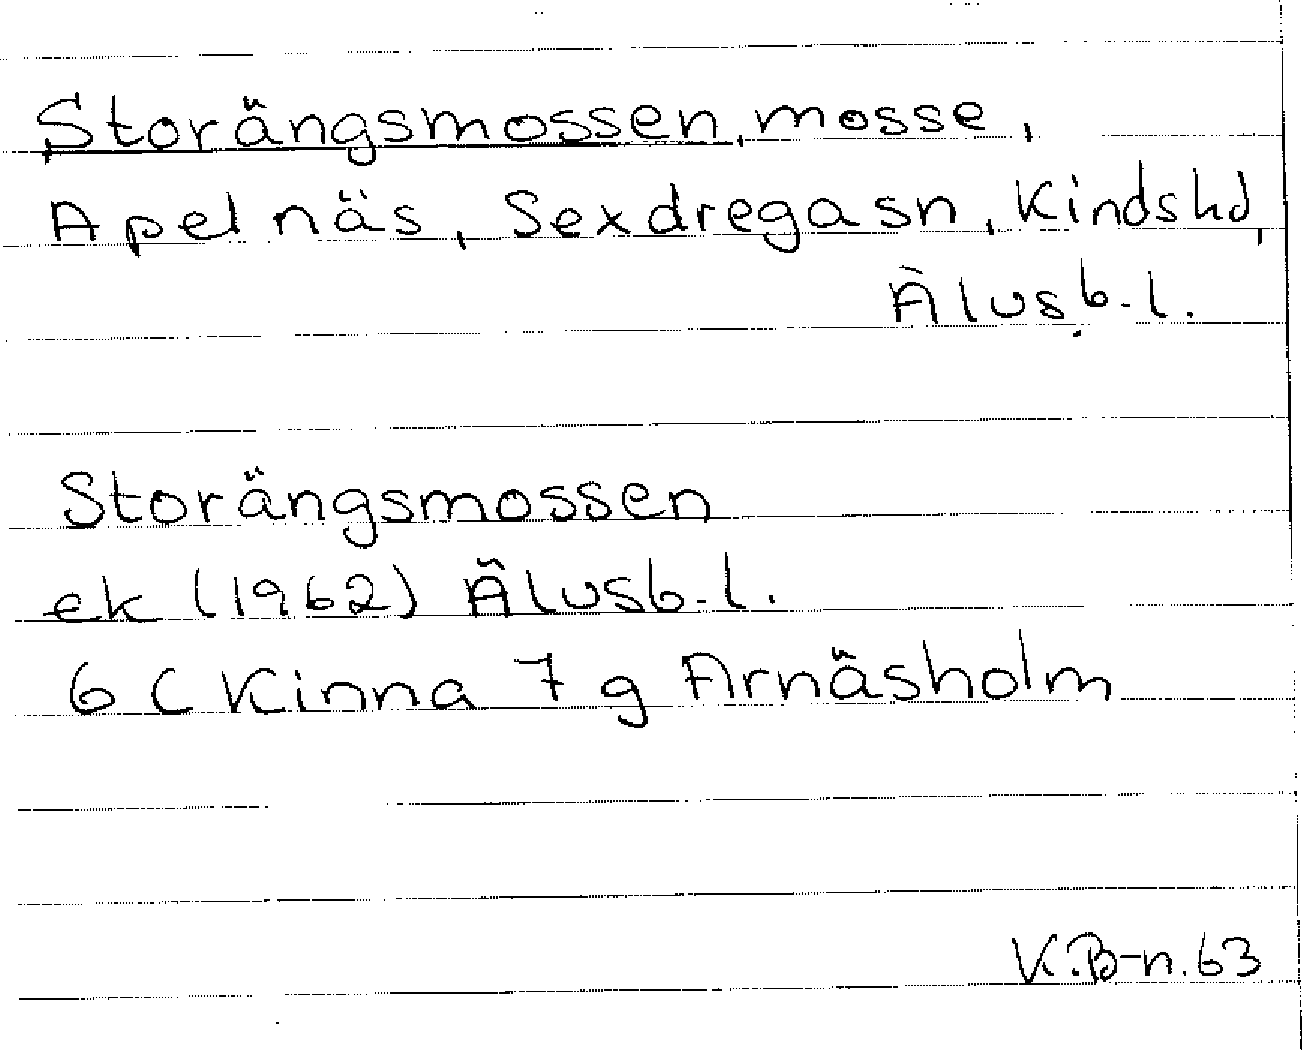 Storängsmossen, mosse,
Apelnäs, Sexdregasn, Kindshd,
Älvsb.l.
Storängsmossen
ek (1962) Älvsb.l.
6 C Kinna 7 g Arnäsholm
K.B-n.63